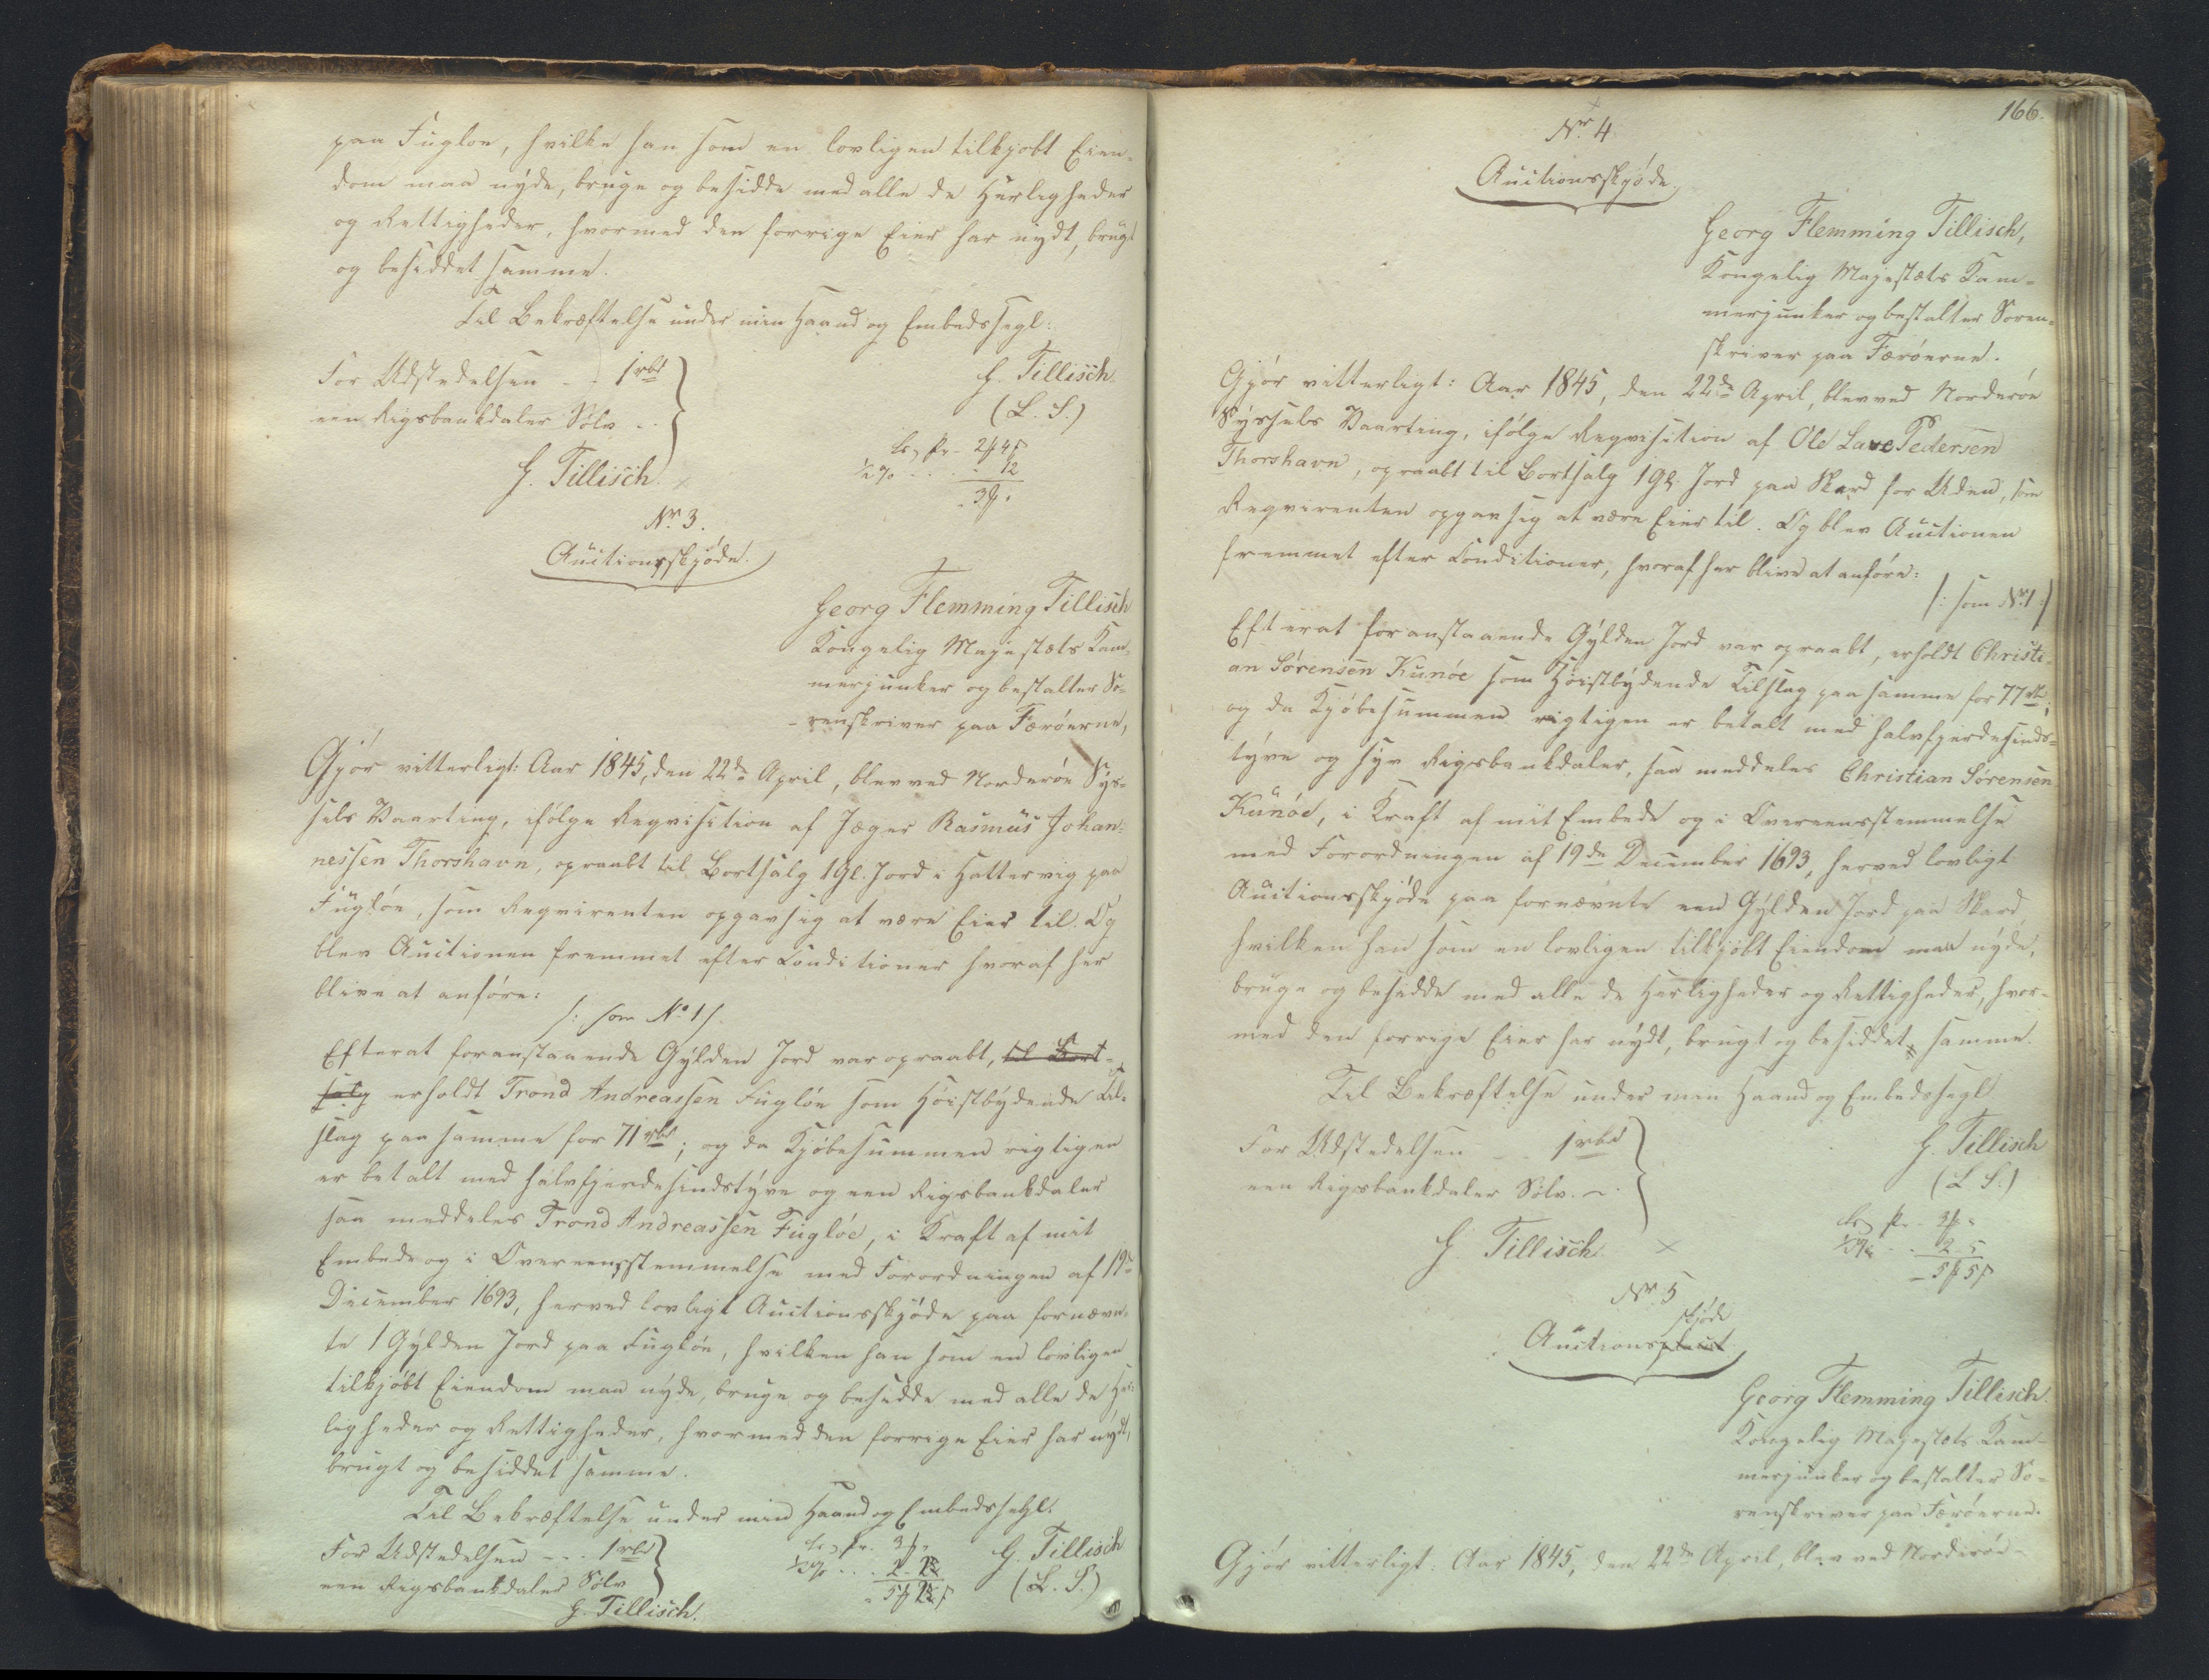 paa Fugloe, hvilke han som en lovligen tilkjobt Eien-
dom maa nÿde, bruge og besidde med alle de Herligheder
og Rettigheder, hvormed den forrige Eier har nÿdt, brugt
og besiddet samme.
Til Bekræftelse under min Haand og Embedssegl:
For Udstedelsen - - 1 rbd
een Rigsbankdaler Sølv - .
G. Tillisch
(L. S.)
G. Tillisch.
½ % . . . 12
Nr 3.
Auctionsskjöde.
Georg Flemming Tillisch
Kongelig Majestæts Kam-
merjunker og bestalter So-
renskriver paa Færöerne,
Gjör vitterligt: Aar 1845, den 22de April, blev ved Norderöe Sÿs-
sels Vaarting, ifölge Reqvisition af Jæger Rasmus Johan-
nessen Thorshavn, opraabt til Bortsalg 1 Gl. Jord i Hattervig paa
Fuglöe, som Reqvirenten opgav sig at være Eier til. Og
blev Auctionen fremmet efter Conditioner hvoraf her
blive at anföre:
/: som No 1 /.
Efterat foranstaaende Gÿlden Jord var opraabt, til Bort-
salg erholdt Trond Andreassen Fuglöe som Höistbÿdende Til-
slag paa samme for 71 rbd; og da Kjöbesummen rigtigen
er betalt med halvfjerdesindstÿve og een Rigsbankdaler
saa meddeles Trond Andreassen Fuglöe, i Kraft af mit
Embede og i Overeensstemmelse med Forordningen af 19de
December 1693, herved lovligt Auctionsskjöde paa fornævn-
te 1 Gÿlden Jord paa Fuglöe, hvilken han som en lovligen
tilkjöbt Eiendom maa nÿde, bruge og besidde med alle de Her-
ligheder og Rettigheder, hvormed den forrige Eier har nÿdt,
brugt og besiddet samme.
Til Bekræftelse under min Haand og Embedssegl.
For Udstedelsen - - - 1 rbd
een Rigsbankdaler Sölv
G. Tillisch
(L. S.)
G. Tillisch.
166.
Nr 4
Auctionsskjöde.
Georg Flemming Tillisch,
Kongelig Majestæts Kam-
merjunker og bestalter Soren-
skriver paa Færöerne.
Gjör vitterligt: Aar 1845, den 22de April, blev ved Norderöe
Sÿssels Vaarting, ifölge Reqvisition af Ole Lave Pedersen
Thorshavn, opraabt til Bortsalg 1 Gl. Jord paa Skard for Uden, som
Reqvirenten opgav sig at være Eier til. Og blev Auctionen
fremmet efter Conditioner, hvoraf her blive at anföre:
/: som Nr 1 :/
Efterat foranstaaende Gÿlden Jord var opraabt, erholdt Christi-
an Sörensen Kunöe som Höistbÿdende Tilslag paa samme for 77 rbd;
og da Kjöbesummen rigtigen er betalt med halvfjerdesinds-
tÿve og sÿv Rigsbankdaler, saa meddeles Christian Sörensen
Kunöe, i Kraft af mit Embede og i Overeensstemmelse
med Forordningen af 19de December 1693, herved lovligt
Auctionsskjöde paa fornævnte een Gÿlden Jord paa Skard,
hvilken han som en lovligen tilkjöbt Eiendom maa nÿde,
bruge og besidde med alle de Herligheder og Rettigheder, hvor-
med den forrige Eier har nÿdt, brugt og besiddet samme.
Til Bekræftelse under min Haand og Embedssegl
For Udstedelsen - - 1 rbd
een Rigsbankdaler Sölv. -.
G. Tillisch
(L. S.)
G. Tillisch
Nr 5
skjöde
Auctions
Georg Flemming Tillisch.
Kongelig Majestæts Kam-
merjunker og bestalter So-
renskriver paa Færöerne.
Gjör vitterligt: Aar 1845, den 22de April, blev ved Norderöe-